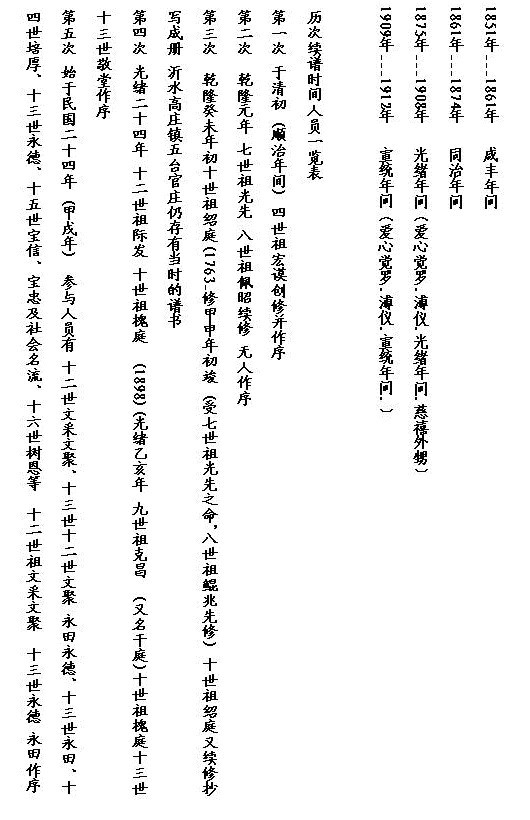 1851年---1861年　咸丰年间
1861年---1874年　同治年间
1875年---1908年　光绪年间(爱心觉罗.溥仪.光绪年间.慈禧外甥)
1909年---1912年　宣统年间(爱心觉罗.溥仪.宣统年间.)
历次续谱时间人员一览表
第一次　于清初(顺治年间)四世祖宏谟创修并作序
第二次　乾隆元年 七世祖光先 八世祖佩昭续修 无人作序
第三次　乾隆癸未年初十世祖绍庭(1763-修甲申年初竣(受七世祖光先之命,八世祖鲲兆先修)十世祖绍庭又续修抄
写成册 沂水高庄镇五台官庄仍存有当时的谱书
第四次 光绪二十四年 十二世祖际发 十世祖槐庭 (1898)(光绪乙亥年 九世祖克昌 (又名千庭)十世祖槐庭十三世
十三世敬堂作序
第五次 始于民国二十四年(甲戌年) 参与人员有 十二世文采文聚、十三世十二世文聚 永田永德、十三世永田、十
四世培厚、十三世永德、十五世宝信、宝忠及社会名流、十六世树恩等 十二世祖文采文聚 十三世永德 永田作序